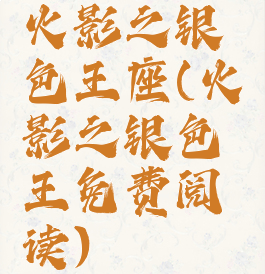 火影之银
色王座(火
影之银色
王免费阅
读)